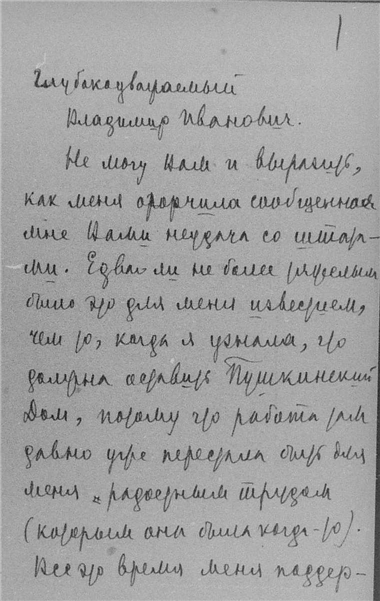 1
Глубокоуважаемый
Владимир Иванович.
Не могу Вам и выразить,
как меня огорчила сообщенная
мне Вами неудача со штата-
ми. Едва ли не более тяжелым
было это для меня известием,
чем то, когда я узнала, что
должна оставить Пушкинский
Дом, потому что работа там
давно уже перестала быть для
меня „радостным трудом
(которым она была когда-то).
Все это время меня поддер-